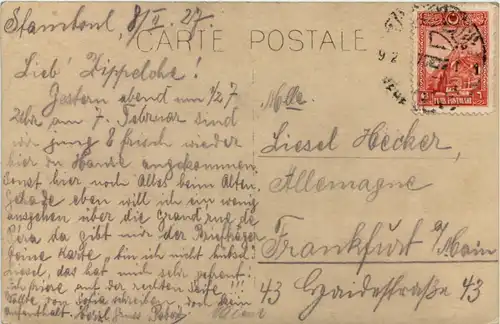 Stamboul, 8/II. 27
CARTE POSTALE
Lieb' Zippelche!
Gestern abend um 1/2 7
Uhr am 7. Februar sind
wir jung & frisch wieder
hier zu Hause angekommen.
Sonst hier noch Alles beim Alten.
Gerade eben will ich ein wenig
ausgehen über die Grand rue de
Péra da gibt mir der Briefträger
Deine Karte, bin ich nicht hübsch?
Liesel, das hat mich sehr gefreut!
ich friere auf der rechten Seite!!!
Wollte von Sofia schreiben, doch kein
Aufenthalt.
Mlle.
Liesel Hecker,
Allemagne
Frankfurt a/Main
43 Haidestraße 43